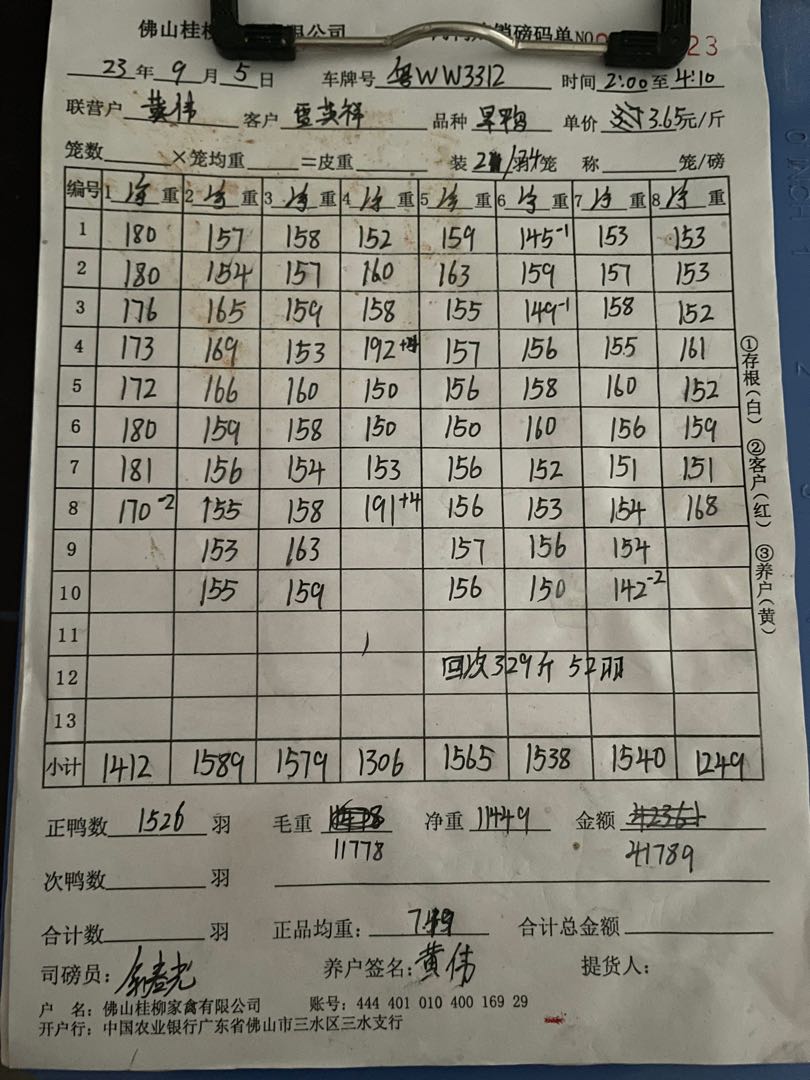 佛山桂柳 限公司 销磅码单NO 23
23年9月5日 车牌号 粤WW3312 时间 2:00至4:10
联营户 黄伟 客户 品种 旱鸭 单价 3.65元/斤
笼数 ×笼均重 =皮重 装 笼 称 笼/磅
编号 1净重 2净重 3净重 4净重 5净重 6净重 7净重 8净重
1 180 157 158 152 159 145-1 153 153
2 180 154 157 160 163 159 157 153
3 176 165 159 158 155 149-1 158 152
4 173 169 153 192+4 157 156 155 161
5 172 166 160 150 156 158 160 152
6 180 159 158 150 150 160 156 159
7 181 156 154 153 156 152 151 151
8 170-2 155 158 191+4 156 153 154 168
9 153 163 157 156 154
10 155 159 156 150 142-2
11
12 回次329斤 52羽
13
小计 1412 1589 1579 1306 1565 1538 1540 1249
正鸭数 1526 羽 毛重 11778 净重 11449 金额 41789
次鸭数 羽
合计数 羽 正品均重: 7.49 合计总金额
司磅员: 养户签名: 黄伟 提货人:
户 名: 佛山桂柳家禽有限公司 账号: 444 401 010 400 169 29
开户行: 中国农业银行广东省佛山市三水区三水支行
①存根(白) ②客户(红) ③养户(黄)